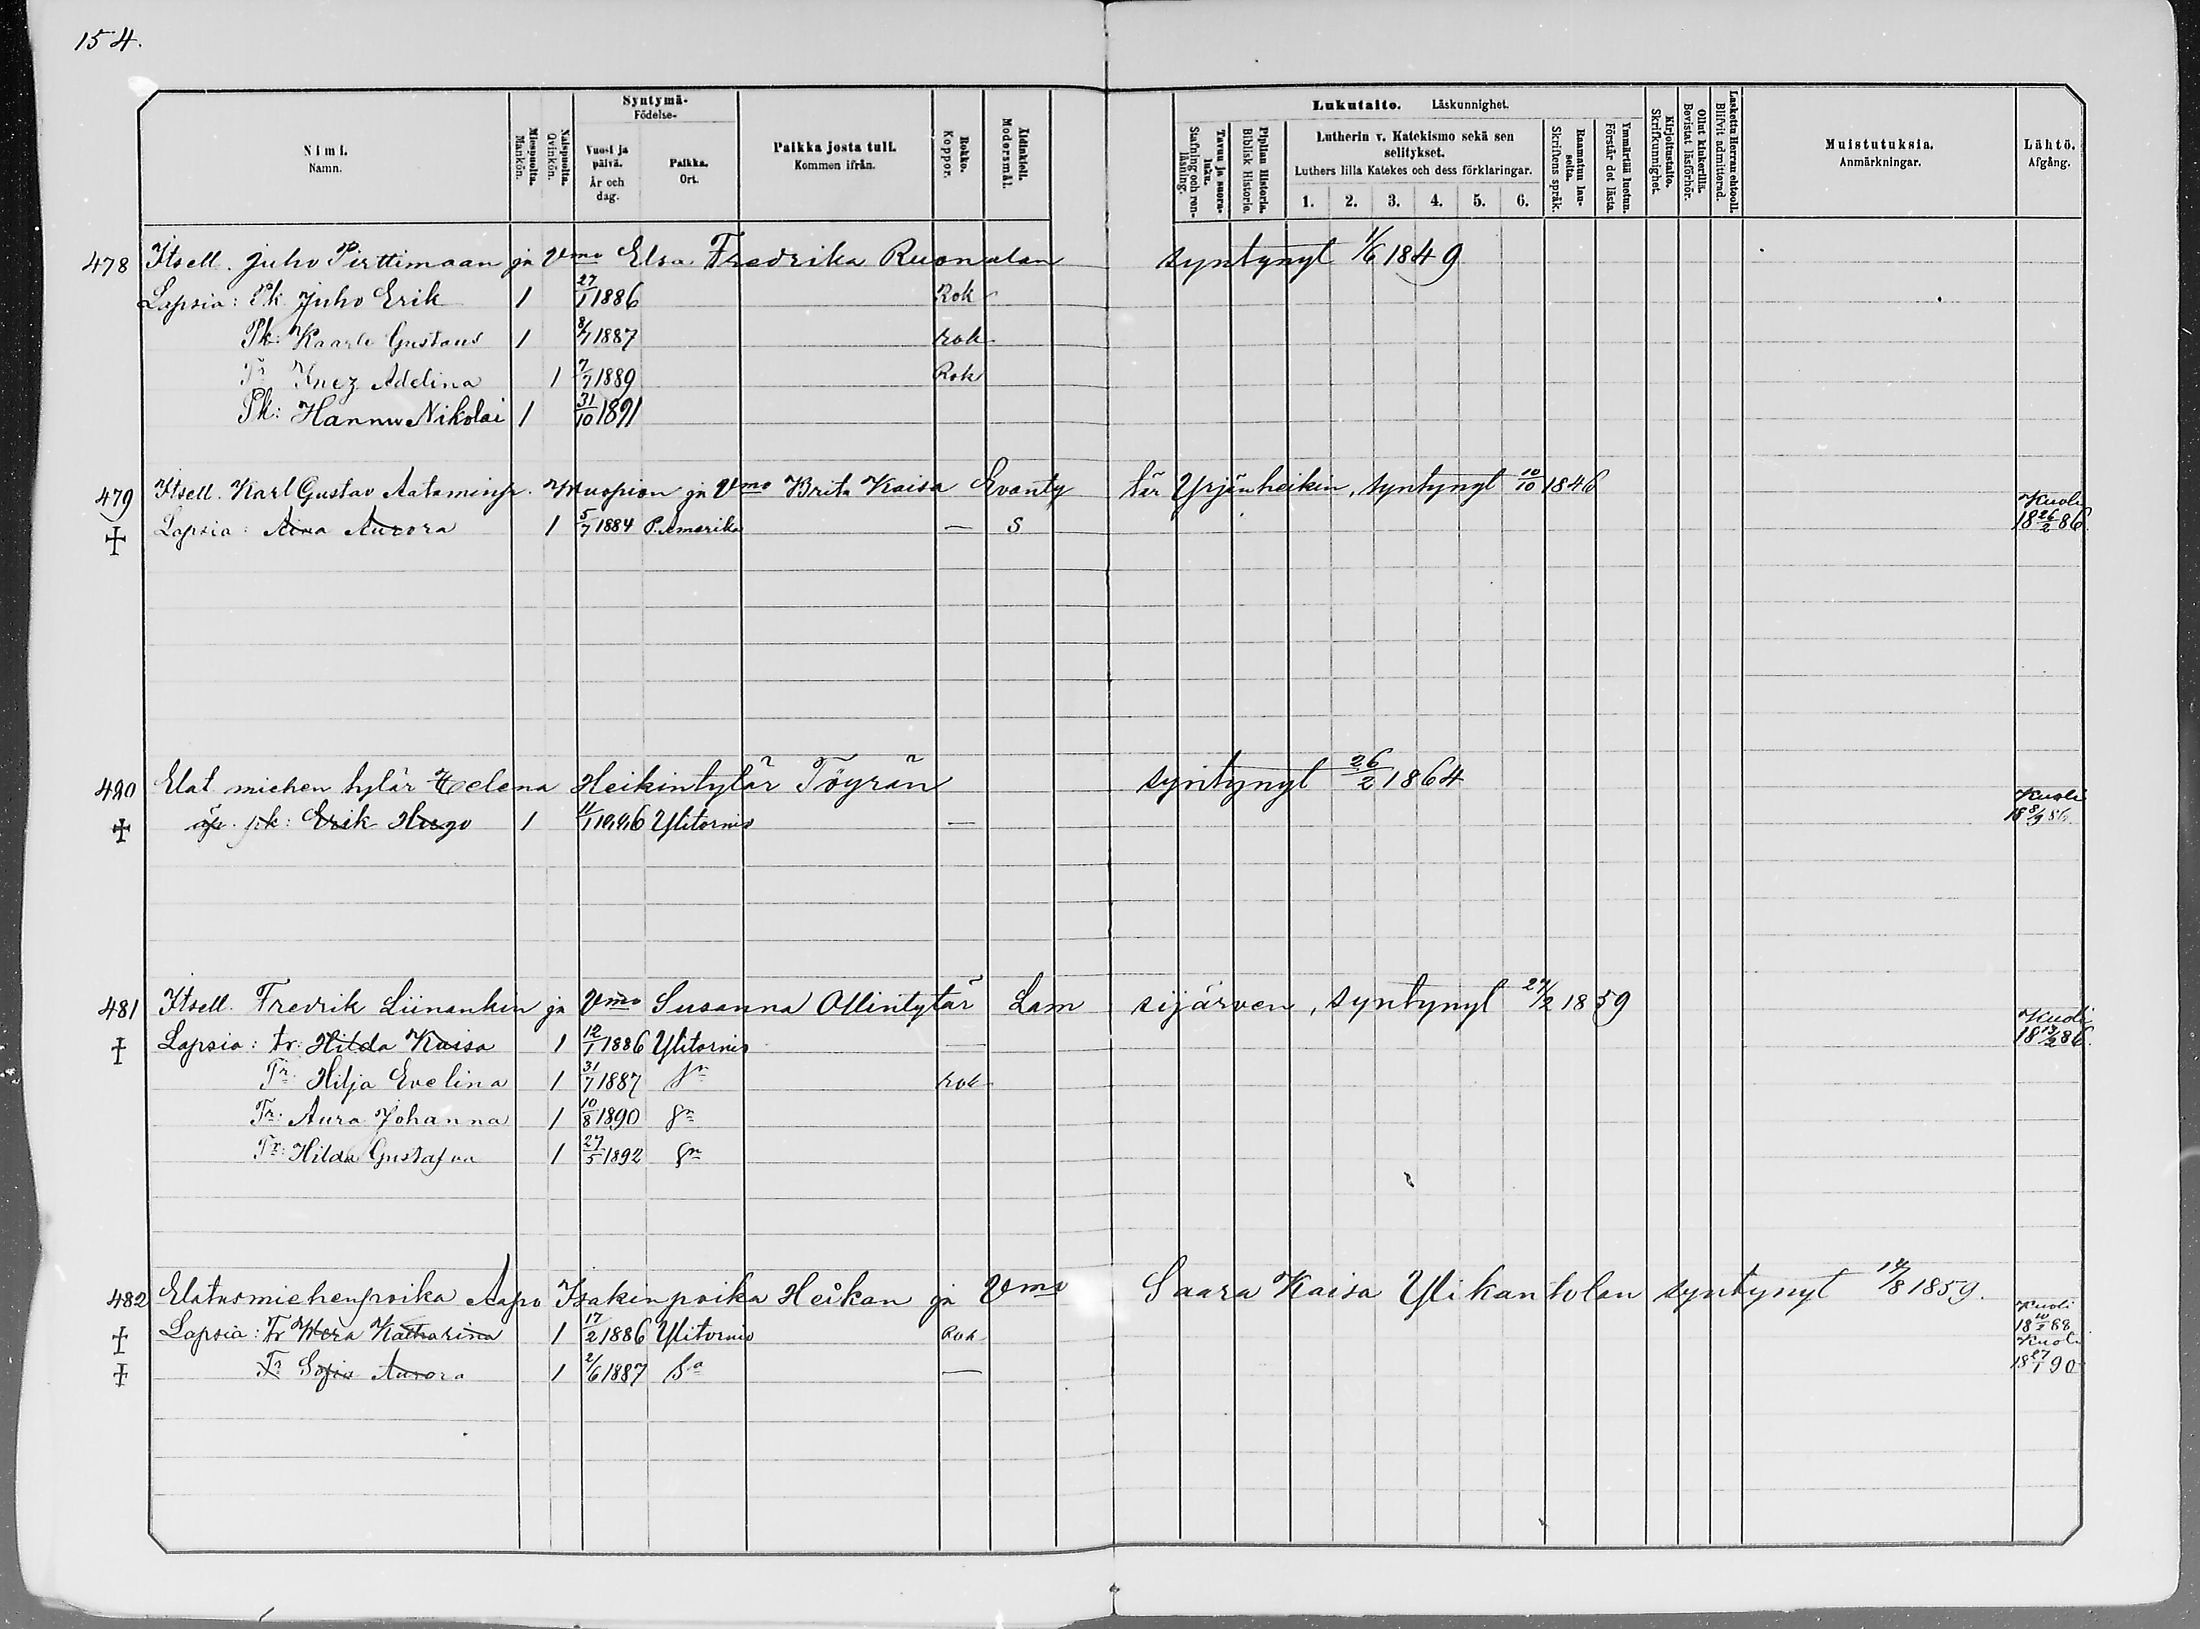 154.
Nimi.
Namn.
Miespuolta.
Mankön.
Naispuolta.
Qvinkön.
Syntymä-
Födelse-
Vuosi ja
päivä.
År och
dag.
Paikka.
Ort.
Paikka josta tuli.
Kommen ifrån.
Rokko.
Koppor.
Äidinkieli.
Modersmål.
Lukutaito. Läskunnighet.
Tavuu ja suora-
luku.
Stafning och ren-
läsning.
Piplian Historia.
Biblisk Historie.
Lutherin v. Katekismo sekä sen
selitykset.
Luthers lilla Katekes och dess förklaringar.
1. 2. 3. 4. 5. 6.
Raamatun lau-
seita.
Skriftens språk.
Ymmärtää luetun.
Förstår det lästa.
Kirjoitustaito.
Skrifkunnighet.
Ollut kinkerillä.
Bevistat läsförhör.
Laskettu Herran ehtooll.
Blifvit admitterad.
Muistutuksia.
Anmärkningar.
Lähtö.
Afgång.
478 Itsell. Juho Pirttimaan ja Vmo Elsa Fredrika Ruonalan syntynyt 1/6 1849
Lapsia: Pk Juho Erik 1 27/1 1886 Rok
Pk: Kaarle Gustaus 1 8/7 1887 rok
Tr Inez Adelina 1 7/7 1889 Rok
Pk: Hannu Nikolai 1 31/10 1891
479 Itsell. Karl Gustav Aataminp. Kuopion ja Vmo Brita Kaisa Evanty tär Yrjänheikin, syntynyt 10/10 1846
Lapsia: Aina Aurora 1 5/7 1884 P. Amerika — S Kuoli 18 26/2 86.
480 Elat miehen tytär Helena Heikintytär Töyrän syntynyt 26/2 1864
äp. pk: Erik Hugo 1 Ylitornio — Kuoli 18 8/9 86.
481 Itsell. Fredrik Liinankin ja Vmo Susanna Ollintytär Lam sijärven, syntynyt 27/2 1859
Lapsia: tr: Hilda Kaisa 1 12/1 1886 Ylitornio — Kuoli 18 13/2 86.
Tr: Hilja Evelina 1 31/7 1887 Sn rok
Tr: Aura Johanna 1 10/8 1890 Sn
Tr: Hilda Gustafva 1 27/5 1892 Sn
482 Elatusmiehenpoika Aapo Isakinpoika Heikan ja Vmo Saara Kaisa Ylikantolan syntynyt 14/8 1859.
Lapsia: Tr Wera Katharina 1 17/2 1886 Ylitornio Rok Kuoli 88
Tr Sofia Aurora 1 2/6 1887 So — Kuoli 18 27/1 90